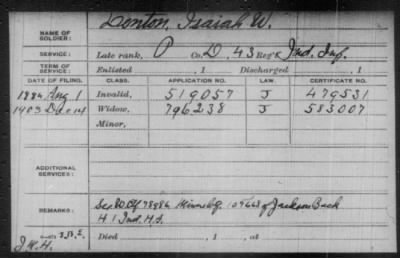 NAME OF SOLDIER: Donton, Isaiah W.
SERVICE: Late rank, P Co. D, 43 Reg't Ind. Inf.
TERM OF SERVICE: Enlisted , 1 Discharged , 1
DATE OF FILING. CLASS. APPLICATION NO. LAW. CERTIFICATE NO.
1884 Aug 1 Invalid, 519057 J 479531
1903 Dec 14 Widow, 796238 J 583007
Minor,
ADDITIONAL SERVICES:
REMARKS: See 78986 109663 of Jackson Bach
H. 1 Ind. H.A.
J.H.H. Died , 1 , at